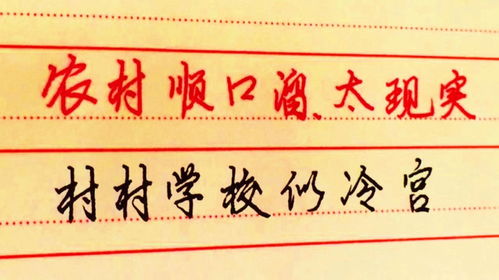 农村顺口溜、太现实
村村学校似冷宫